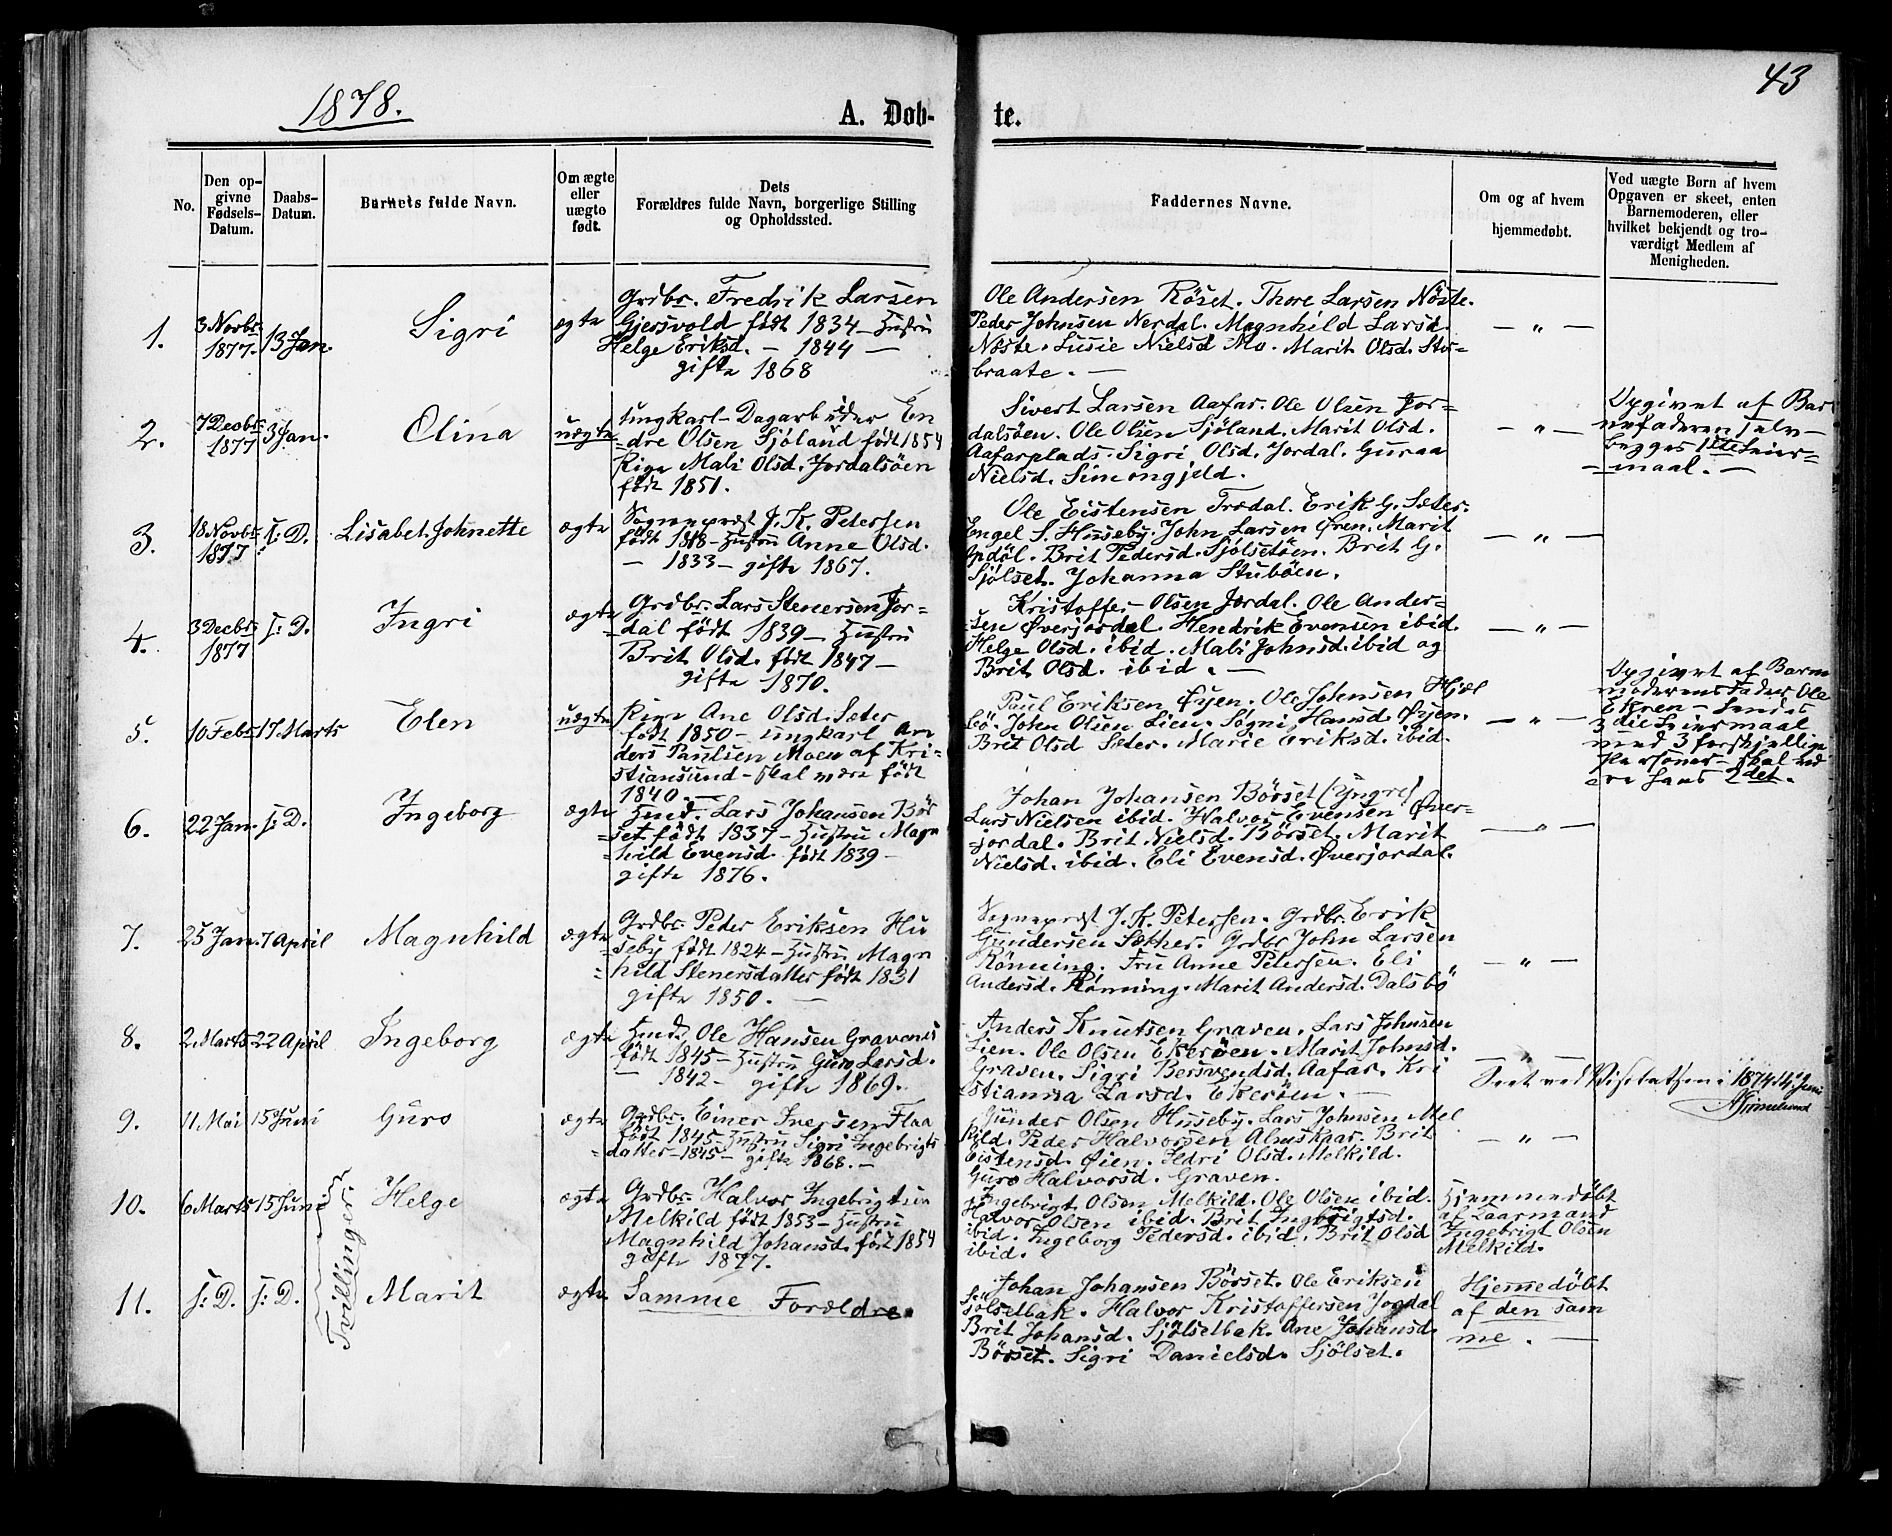 1878.
43
A. Døb-
te.
No.
Den op-
givne
Fødsels-
Datum.
Daabs-
Datum.
Barnets fulde Navn.
Om ægte
eller
uægte
født.
Dets
Forældres fulde Navn, borgerlige Stilling
og Opholdssted.
Faddernes Navne.
Om og af hvem
hjemmedøbt.
Ved uægte Børn af hvem
Opgaven er skeet, enten
Barnemoderen, eller
hvilket bekjendt og tro-
værdigt Medlem af
Menigheden.
1.
3 Novbr.
1877.
13 Jan.
Sigri
ægte
Grdbr. Fredrik Larsen
Gjersvold født 1834 – Hustru
Helge Eriksd. – 1844 –
gifte 1868
Ole Andersen Röset. Thore Larsen Nöste.
Peder Johnsen Nerdal. Magnhild Larsd.
Nöste. Susie Nielsd Mo. Marit Olsd. Stu-
braate. –
– " –
2.
7 Decbr
1877
3 Jan.
Olina
uægte
Ungkarl – Dagarbeider En
dre Olsen Sjöland født 1854
Pige Mali Olsd. Jordalsöen
født 1851.
Sivert Larsen Aafar. Ole Olsen Jor-
dalsöen. Ole Olsen Sjöland. Marit Olsd.
Aafarplads. Sigri Olsd. Jordal. Guraa
Nielsd. Simongjeld.
– " –
Opgivet af Bar
nefaderen selv –
begges 1ste Leier-
maal. –
3.
18 Novbr
1877
s: D.
Lisabet Johnette
ægte
Sogneprest J. K. Petersen
født 1818 – Hustru Anne Olsd.
– 1833 – gifte 1867.
Ole Eistensen Trædal. Erik G. Sæter.
Engel S. Huseby. John Larsen Ören. Marit
Opdöl. Brit Pedersd. Sjölsetöen. Brit G.
Sjölset. Johanna Stuböen.
– " –
4.
3 Decbr.
1877
s: D.
Ingri
ægte
Grdbr. Lars Stenersen Jor-
dal født 1839 – Hustru
Brit Olsd. født 1847 –
gifte 1870.
Kristoffer Olsen Jordal. Ole Ander-
sen Øverjordal. Hendrik Evensen ibid.
Helge Olsd. ibid. Mali Johnsd. ibid og
Brit Olsd. ibid. –
– " –
5.
10 Febr
17 Marts
Elen
uægte
Pige Ane Olsd. Sæter
født 1850 – ungkarl An
ders Paulsen Moen af Kri-
stiansund – skal være født
1840. –
Paul Eriksen Øyen. Ole Johnsen Hjel
bö. John Olsen Lien. Segni Hansd. Øyen.
Brit Olsd Sæter. Marie Eriksd. ibid.
– " –
Opgivet af Barne
moderens Fader Ole
Ekren –
3die Leiermaal
med 3 forskjellige
Personer – skal
være hans 2det.
6.
22 Jan.
s: D.
Ingeborg
ægte
Hmd. Lars Johansen Bör
set født 1837 – Hustru Magn
hild Evensd. født 1839 –
gifte 1876.
Johan Johansen Börset (Yngre)
Lars Nielsen ibid. Halvor Evensen Øver-
jordal. Brit Nielsd. Börset. Marit
Nielsd. ibid. Eli Evensd. Øverjordal.
– " –
7.
25 Jan.
7 April
Magnhild
ægte
Grdbr. Peder Eriksen Hu
seby født 1824 – Hustru Magn
hild Stenersdatter født 1831
gifte 1850. –
Sogneprest J. K. Petersen. Grdbr. Erik
Gundersen Sæther. Grdbr John Larsen
Rönning. Fru Anne Petersen. Eli
Andersd. Rönning. Marit Andersd. Dalsbö
– " –
8.
2 Marts
22 April
Ingeborg
ægte
Hmd. Ole Hansen Gravenes
født 1845 – Hustru Guro Larsd.
– 1842 – gifte 1869.
Anders Knutsen Graven. Lars Johnsen
Lien. Ole Olsen Ekeröen. Marit Johnsd.
Graven. Sigri Bersvendsd. Aafar. Kri
stianna Larsd. Ekeröen. –
– " –
Seet ved Visetatsen i 1878 14 Juni
9.
11. Mai
15 Juni
Guro
ægte
Grdbr. Einer Iversen Flaa
født 1845 – Hustru Sigri Ingebrigts
datter – 1845 – gifte 1868. –
Gunder Olsen Huseby. Lars Johnsen Mel
kild. Peder Halvorsen Almskaar. Brit
Eistensd. Øien. Ildri Olsd. Melkild.
Guro Halvorsd. Graven.
– " –
10.
6 Marts
15 Juni
Tvillinger.
Helge
ægte
Grdbr. Halvor Ingebrigtsen
Melkild født 1853 – Hustru
Magnhild Johansd. født 1854
gifte 1877.
Ingebrigt Olsen Melkild. Ole Olsen ibid.
Halvor Olsen ibid. Brit Ingebrigtsd.
ibid. Ingeborg Pedersd. ibid. Brit Olsd
ibid.
Hjemmedøbt
af Gaarmand
Ingebrigt Olsen
Melkild.
11.
s: D.
s: D.
Marit
ægte
Samme Forældre.
Johan Johansen Börset. Ole Eriksen
Sjölsetbak. Halvor Kristoffersen Jordal
Brit Johansd. Sjölsetbak. Ane Johansd.
Börset. Sigri Danielsd. Sjölset.
Hjemmedöbt
af den sam
me. –